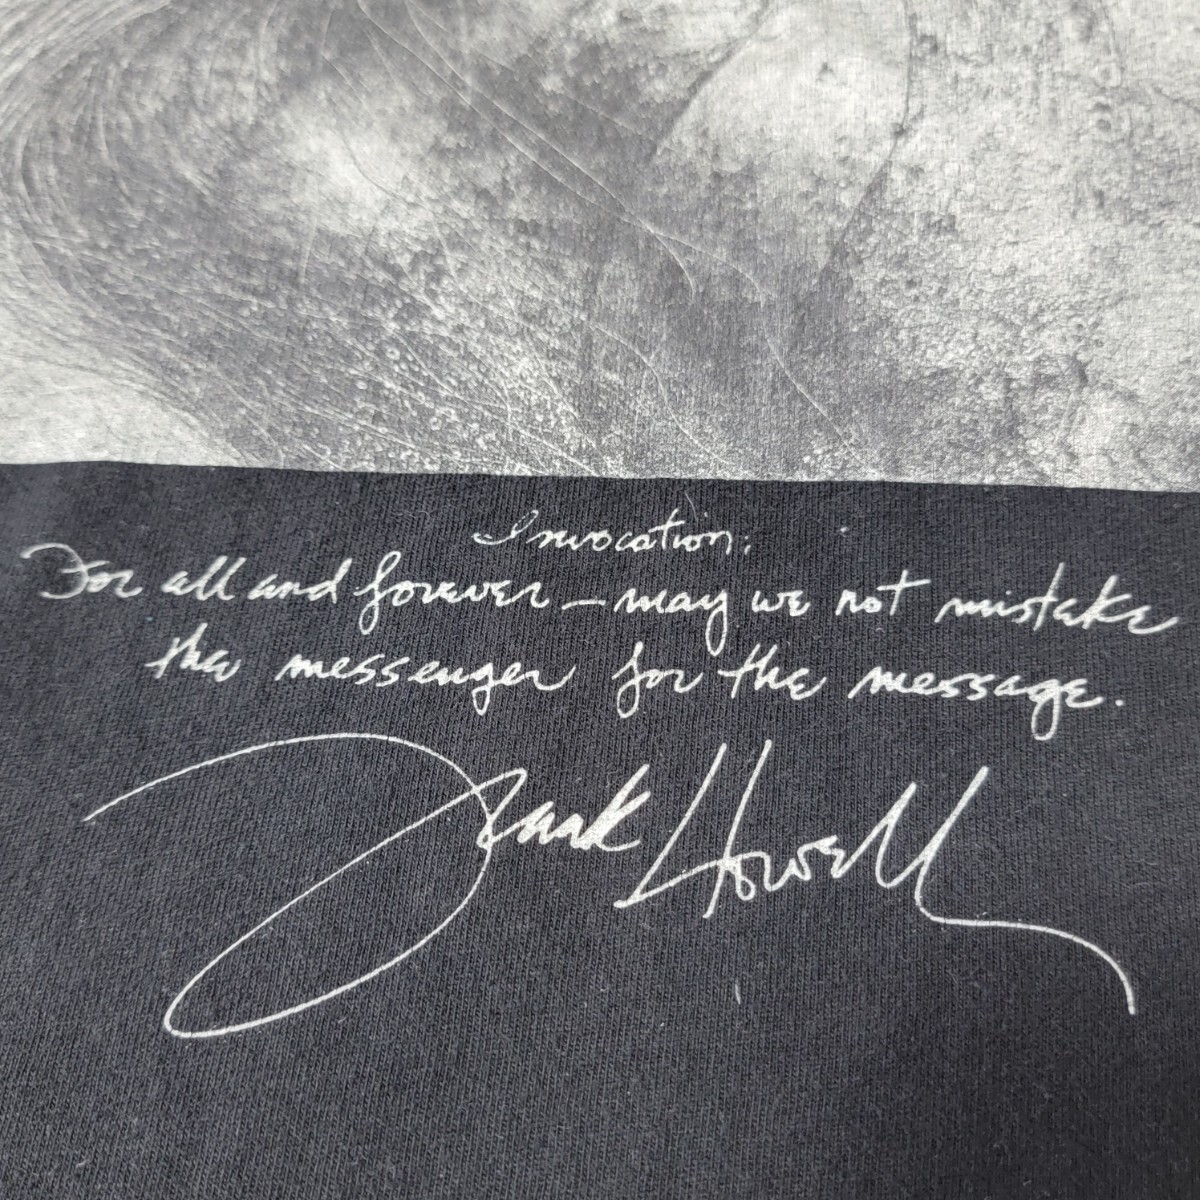 Invocation:
For all and forever — may we not mistake
the messenger for the message.
Frank Howell